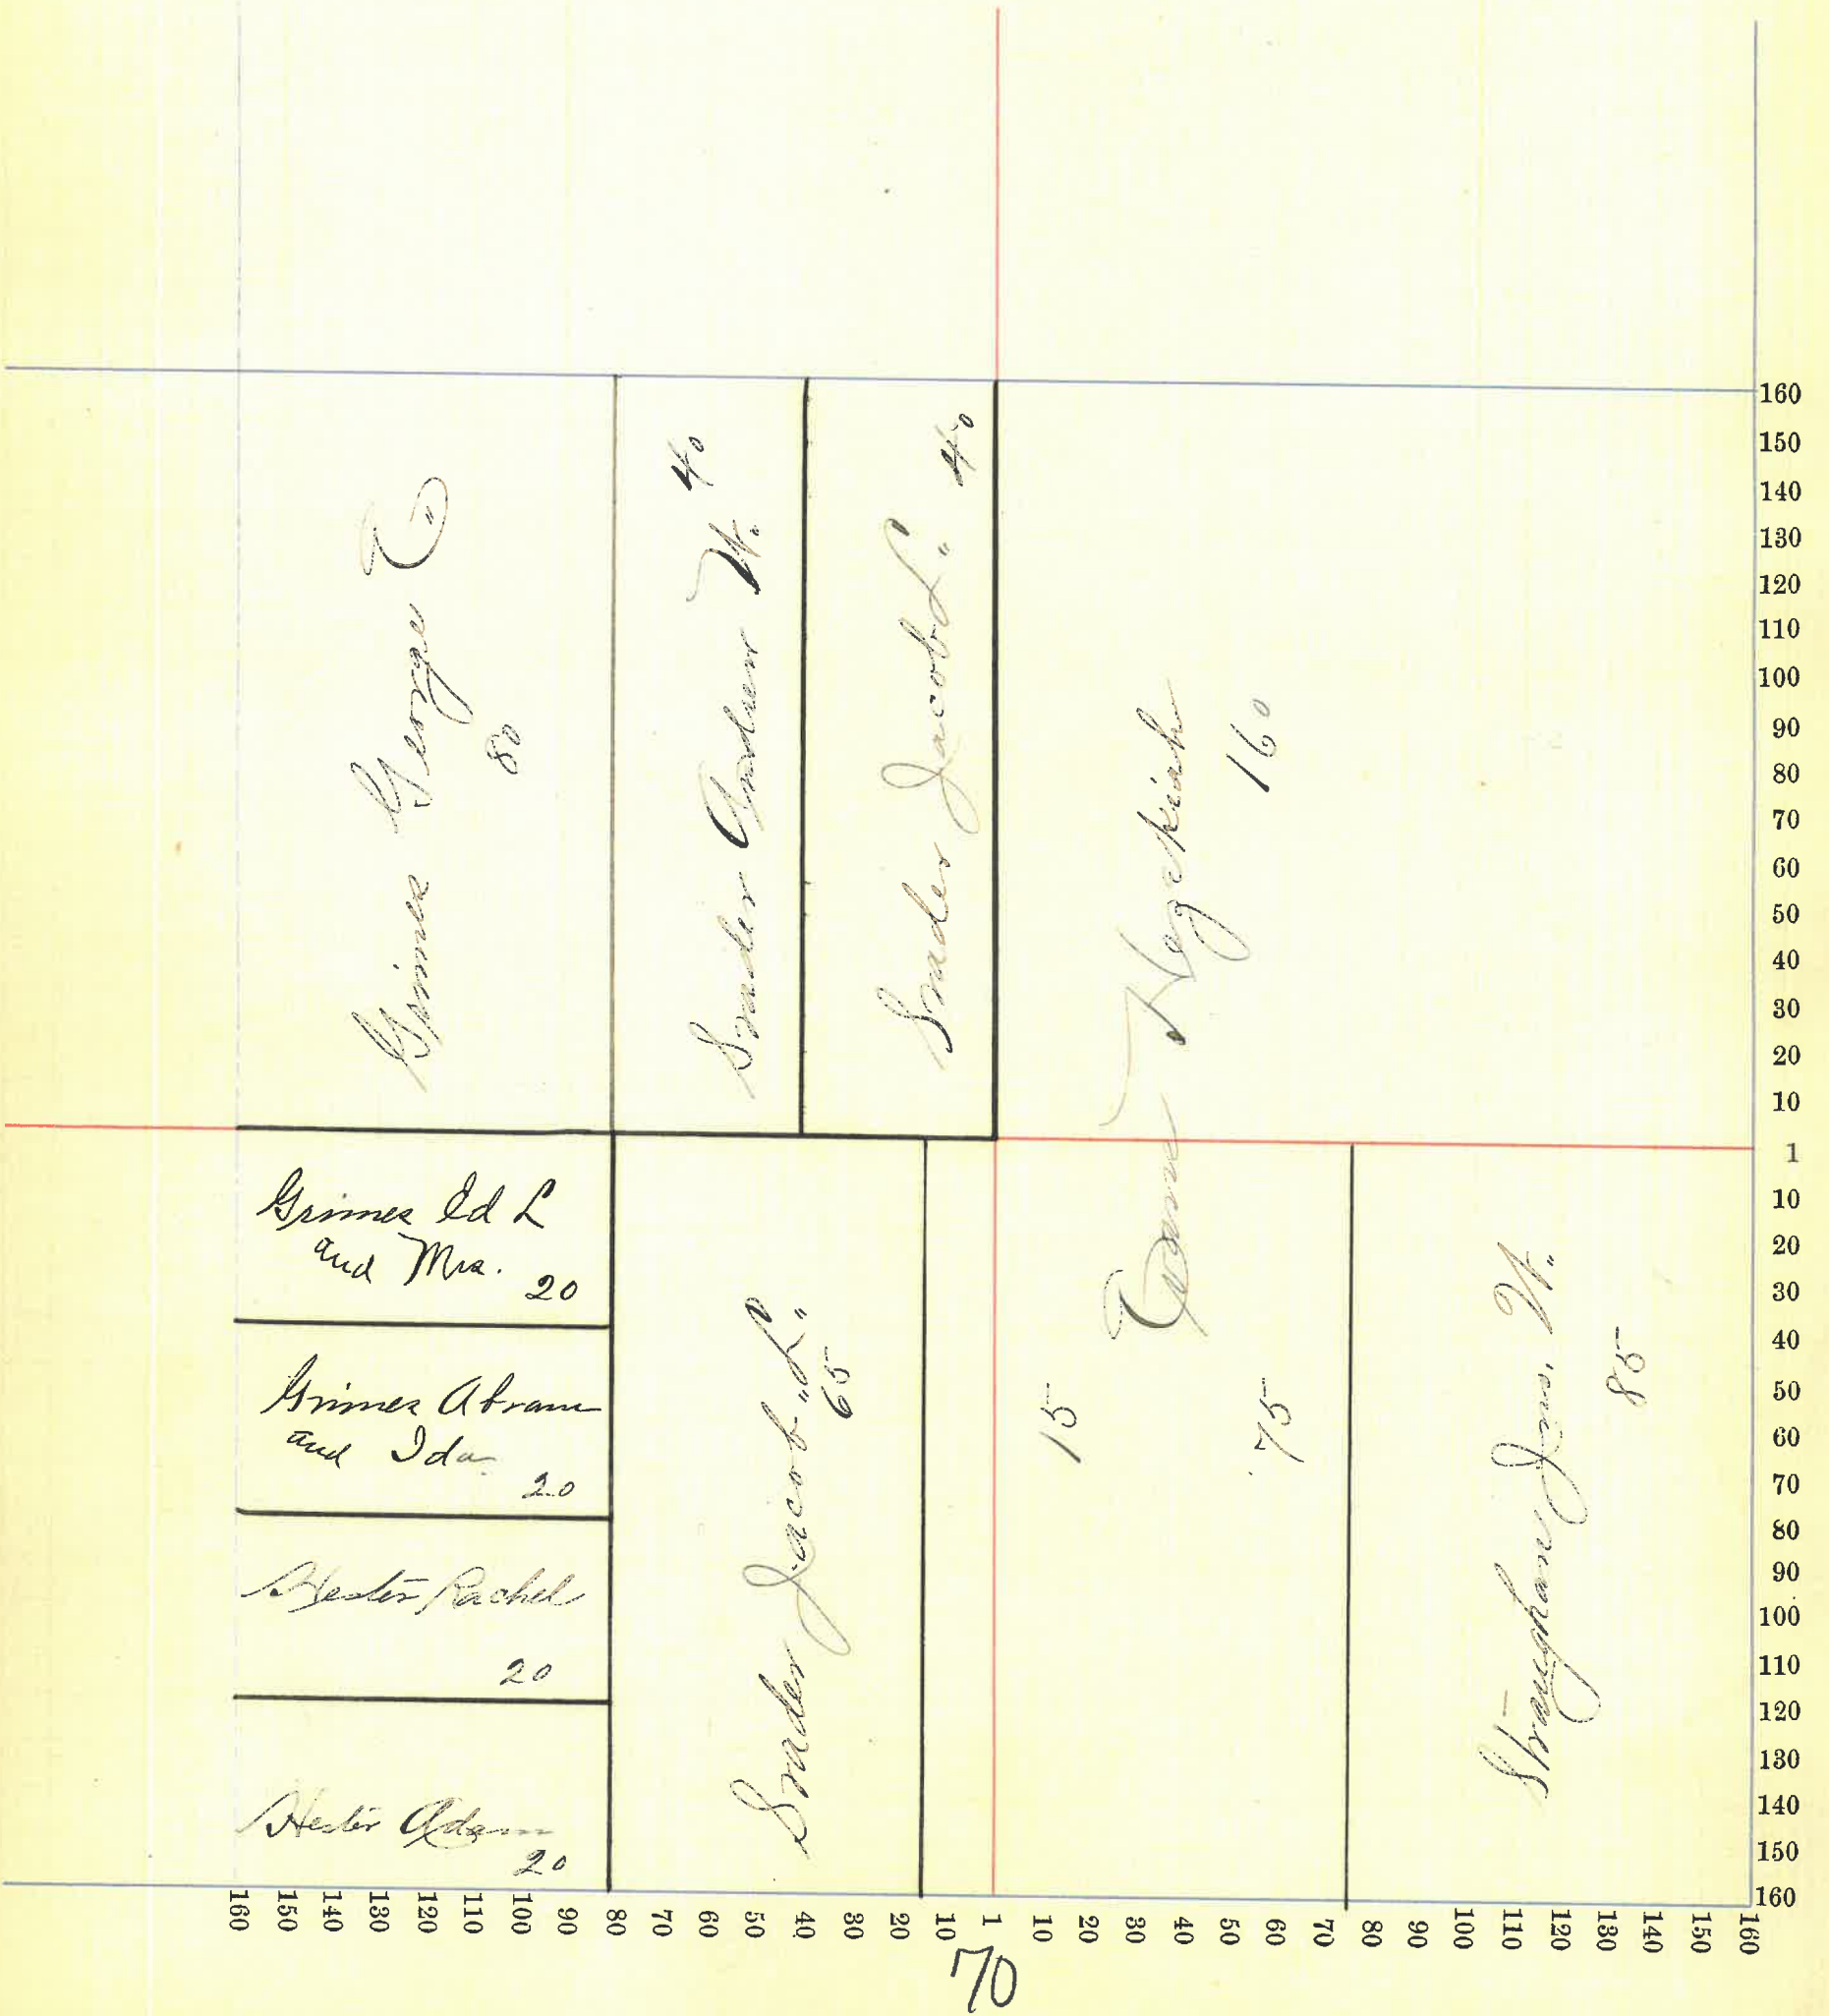 Grimes George E.
80
Snider Andrew W. 40
Snider Jacob L. 40
Evans Hezekiah
160
15
75
Grimes Ed L
and Mrs.
20
Grimes Abram
and Ida
20
Hester Rachel
20
Hester Adam
20
Snider Jacob L.
65
Straughan Jno. W.
85
160
150
140
130
120
110
100
90
80
70
60
50
40
30
20
10
1
10
20
30
40
50
60
70
80
90
100
110
120
130
140
150
160
160 150 140 130 120 110 100 90 80 70 60 50 40 30 20 10 1 10 20 30 40 50 60 70 80 90 100 110 120 130 140 150 160
70